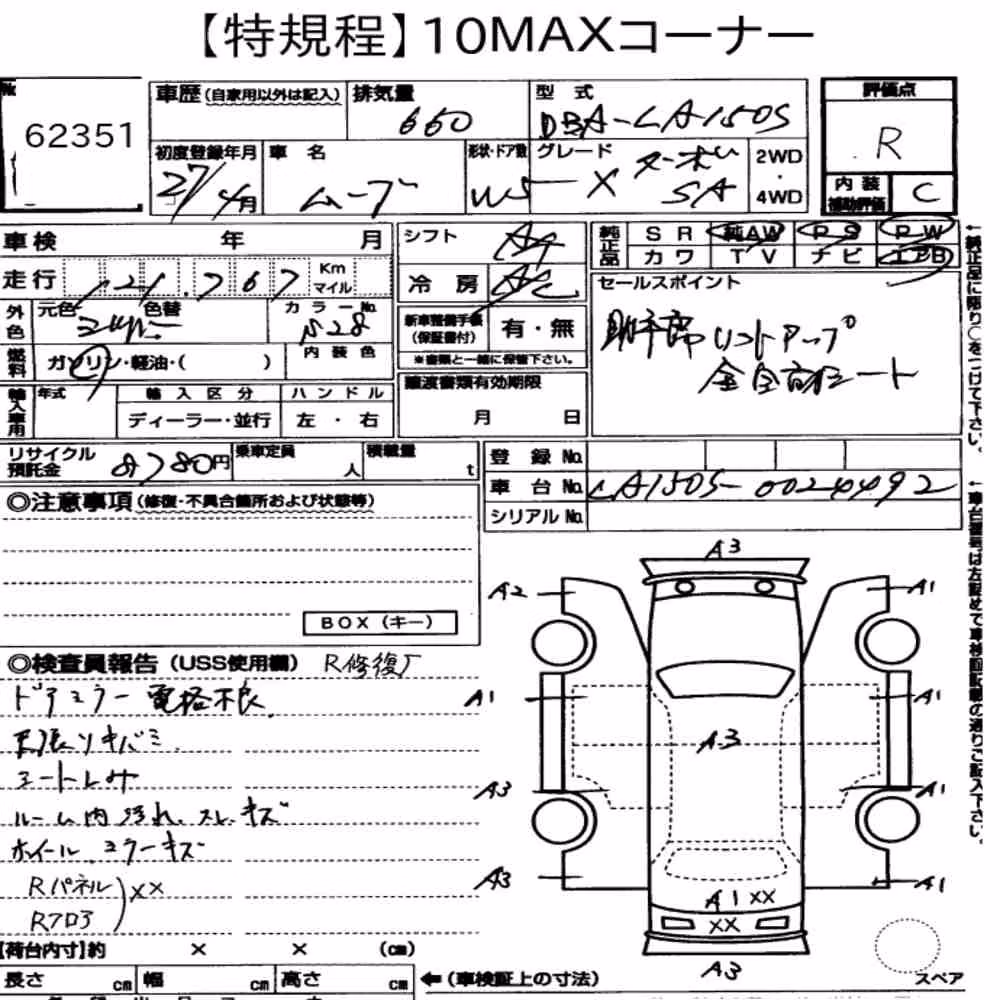 【特規程】10MAXコーナー
No.
62351
車歴 (自家用以外は記入)
排気量
660
型式
DBA-LA150S
評価点
R
初度登録年月
27/4月
車名
ムーブ
形状・ドア数
W5
グレード
X ターボ SA
2WD
・
4WD
内装
補助評価
C
車検 年 月
シフト
AT
純正品
SR 純AW PS PW
カワ TV ナビ エアB
走行 121,767 Km マイル
冷房
AC
セールスポイント
助手席リフトアップ
外色
元色 色替
カラーNo.
S28
新車整備手帳
(保証書付)
有・無
※書類と一緒に保管下さい。
燃料
ガソリン・軽油・( )
内装色
譲渡書類有効期限
月 日
輸入車用
年式
輸入区分
ハンドル
ディーラー・並行
左・右
リサイクル
預託金
8780円
乗車定員
人
積載量
t
登録No.
車台No.
LA150S-0024492
シリアルNo.
←純正品に限り○をつけて下さい。
←車台番号は左詰めで車検証記載の通りご記入下さい。
◎注意事項(修復・不具合箇所および状態等)
BOX(キー)
◎検査員報告(USS使用欄) R修復
ドアミラー電格不良
天張リキバミ
シートしみ
ルーム内汚れ、スレ・キズ
ホイール、ミラーキズ
Rパネル
Rフロア
)××
A3
A2
A1
A1
A1
A3
A3
A1
A3
A1
A1××
××
A3
スペア
【荷台内寸】約 × × (cm)
長さ cm 幅 cm 高さ cm
←(車検証上の寸法)